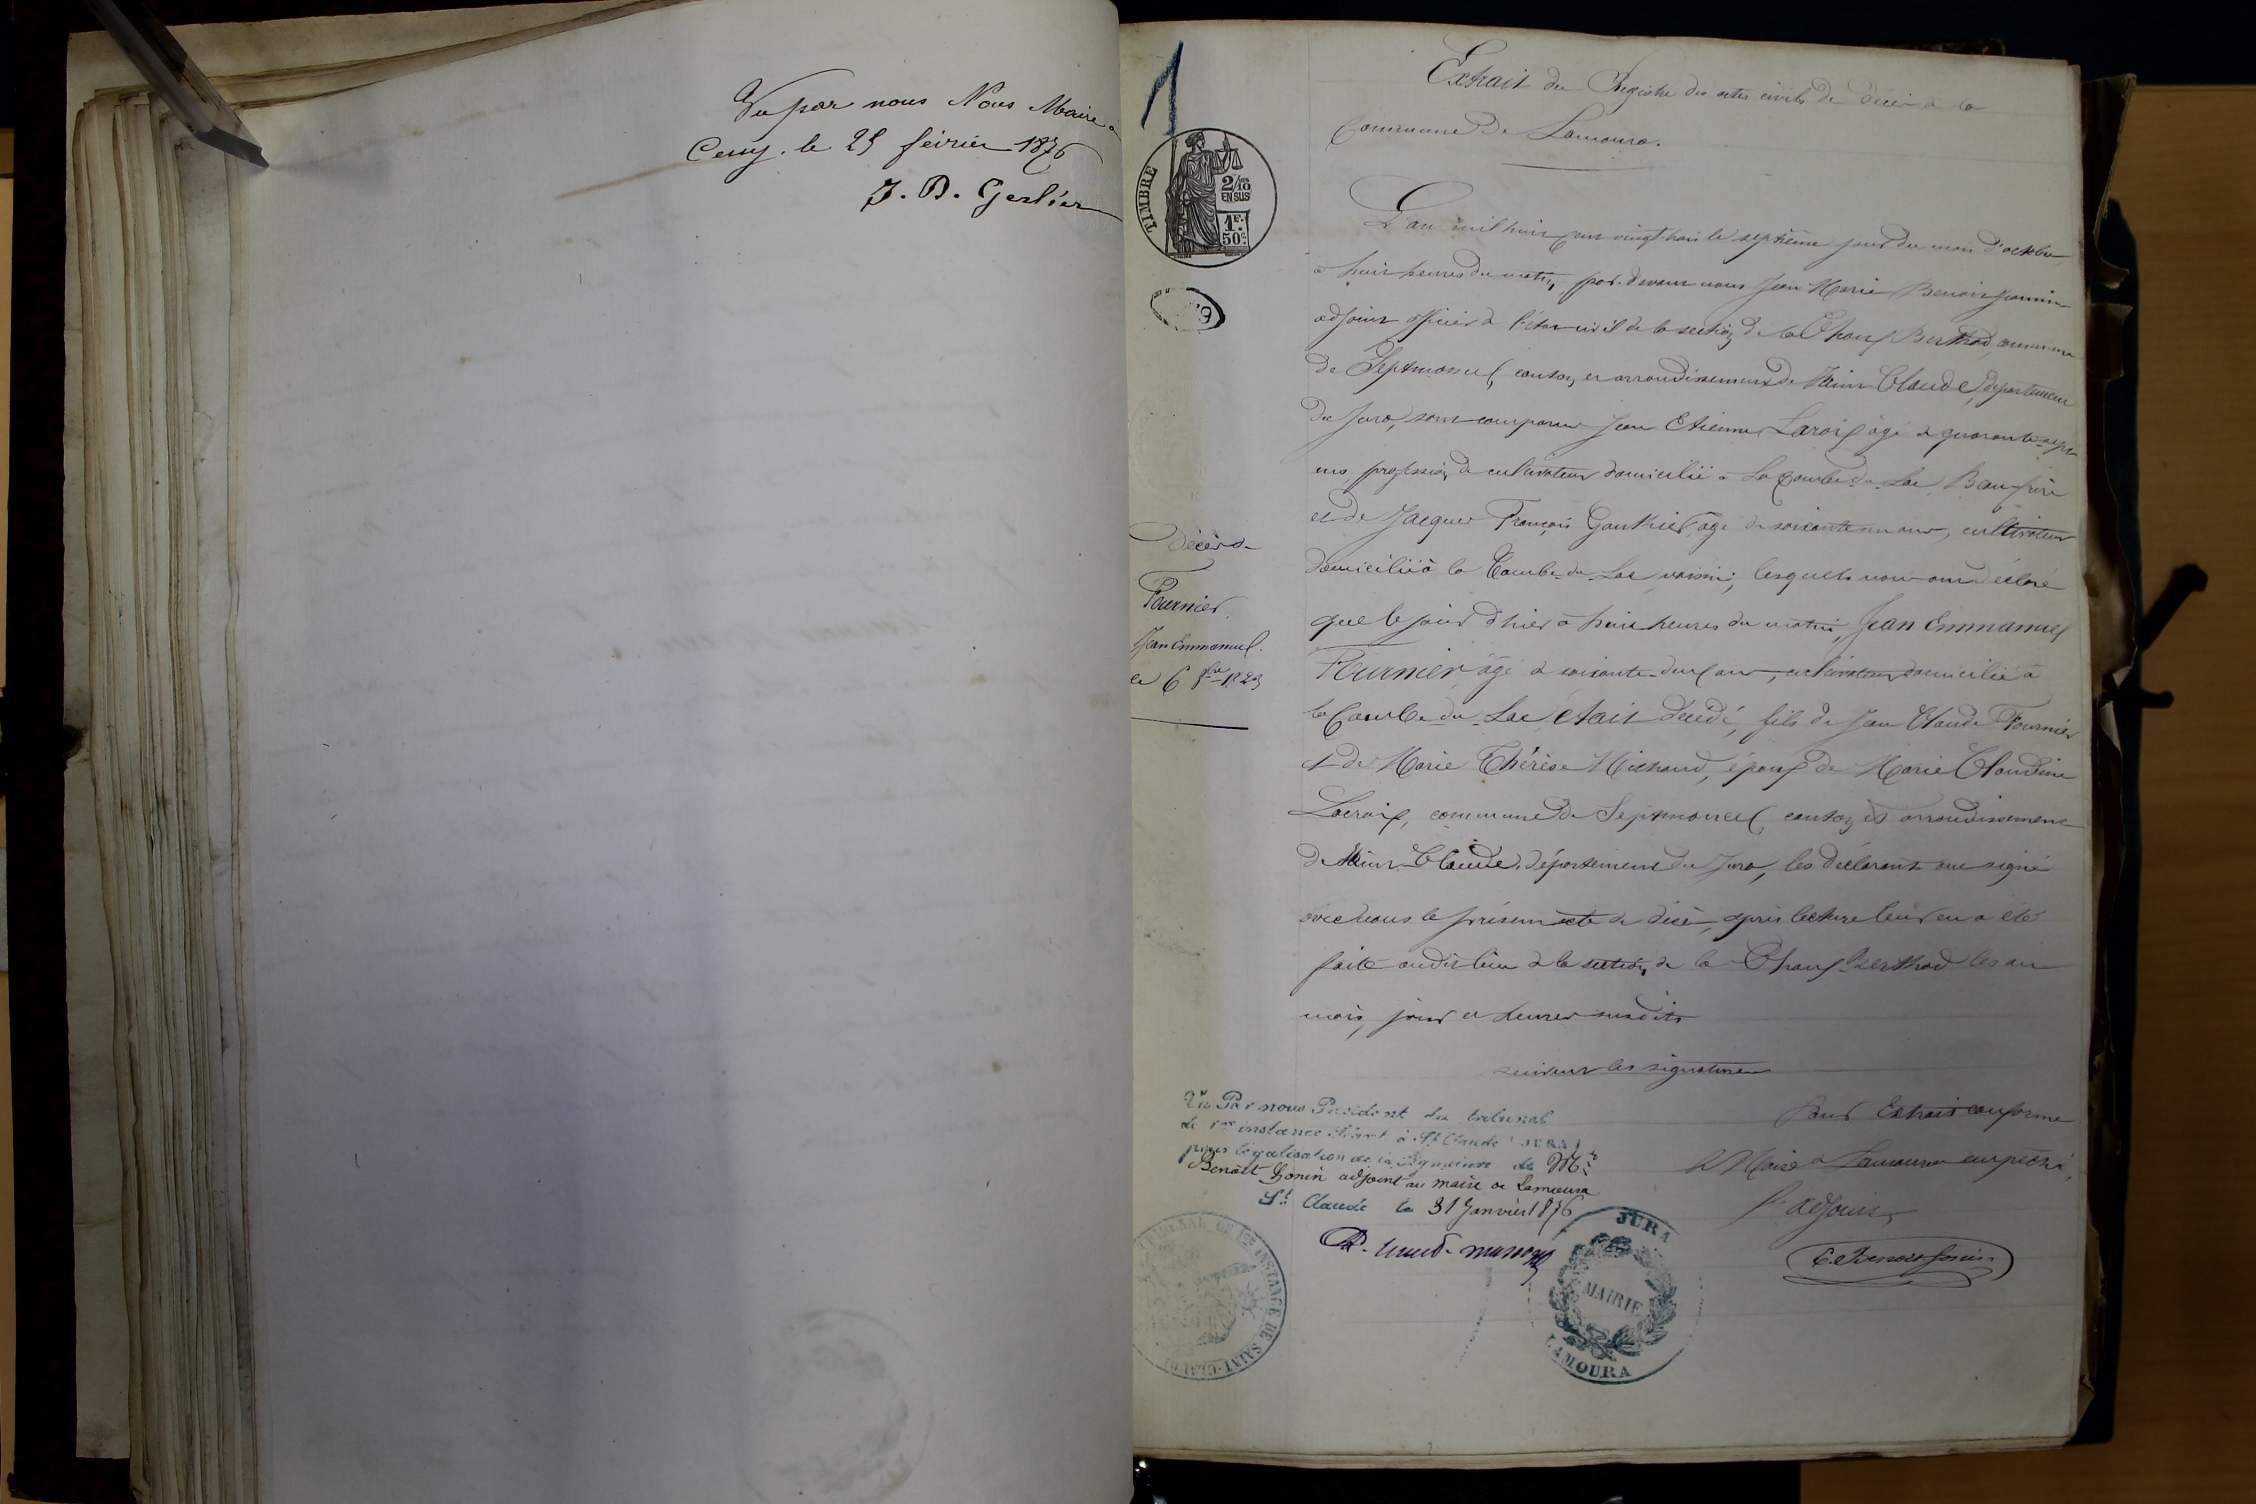 Vu par nous Nous Maire à
Cessy. le 25 février 1876
J. B. Gerlier
1
TIMBRE
2/10
EN SUS
1F.
50c
Extrait du Registre des actes civils de décès de la
Commune de Lamoura.
L'an mil huit cent vingt trois le septième jour du mois d'octobre
à huit heures du matin, par devant nous Jean Marie Benoit Jeannin
adjoint officier de l'état civil de la section de la Chaux Berthod, commune
de Septmoncel, canton et arrondissement de Saint Claude, département
du Jura, sont comparus Jean Etienne Lacroix âgé de quarante sept
ans, profession de cultivateur domicilié à La Combe du Lac Beau frère
et de Jacques François Gauthier, âgé de soixante un ans, cultivateur
domicilié à la Combe du Lac voisin, lesquels nous ont déclaré
que le jour d'hier à huit heures du matin, Jean Emmanuel
Fournier âgé de soixante deux ans, cultivateur domicilié à
la Combe du Lac était décédé, fils de Jean Claude Fournier
et de Marie Thérèse Michaud, époux de Marie Claudine
Lacroix, commune de Septmoncel, canton et arrondissement
de Saint Claude, département du Jura, les déclarants ont signé
avec nous le présent acte de décès, après lecture leur en a été
faite audit lieu de la section de la Chaux Berthod les an
mois, jour et heures susdits
suivent les signatures
Décès de
Fournier
Jean Emmanuel.
le 6 8bre 1823
Pour Extrait conforme
le Maire de Lamoura empêché,
l'adjoint,
E. Benoit Jonin
Vu Par nous Président du tribunal
de 1ère instance séant à St Claude (JURA)
pour légalisation de la signature de Mr
Benoit Jonin adjoint au maire de Lamoura
St Claude le 31 Janvier 1876
TRIBUNAL DE 1ère INSTANCE DE SAINT-CLAUDE
JURA
MAIRIE
LAMOURA